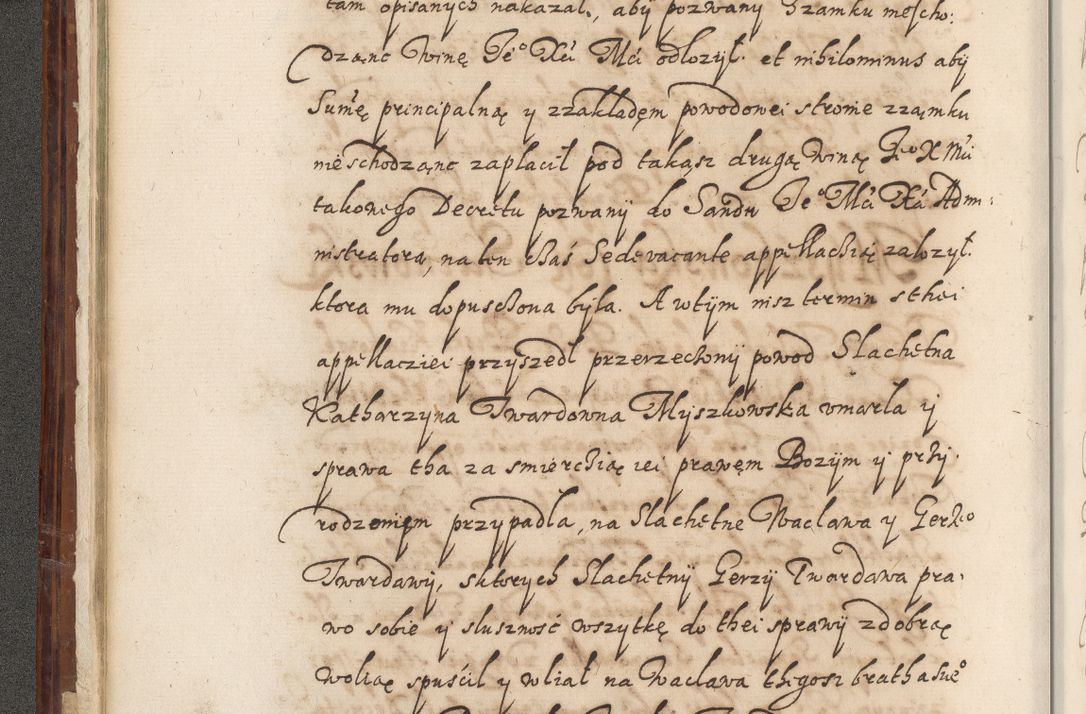 tam opisanych nakazał, aby pozwany Szamku mescho:
dzanc winę Je° Xći Mći odlozył. et nihilominus aby
Sumę principalną y zzakładęm powodowei stronie zzamku
nieschodzanc zapłacił pod takąsz drugą winą Je° X Mći
takonego Decretu pozwany do Sandu Je° Mći Xa Adm:
nistratora, na ten czas Sede vacante appellaczią załozył.
ktora mu dopusczona była. A wtym nisz termin sthei
appellacziei przyszedł przerzeczony powod Slachetna
Katharzyna Twardowna Myszkowska vmarła y
sprawa tha za smierczią iei prawęm Bozym y przy.
rodzenięm przypadła, na Slachetne Wacława y Gerze°
Twardawy, sktorych Slachetny Gerzy Twardawa pra.
wo sobie y słusznosć wszytkę do thei sprawy zdobrą
wolią spuścił y wliał na Wacława thegosz bratha sue°